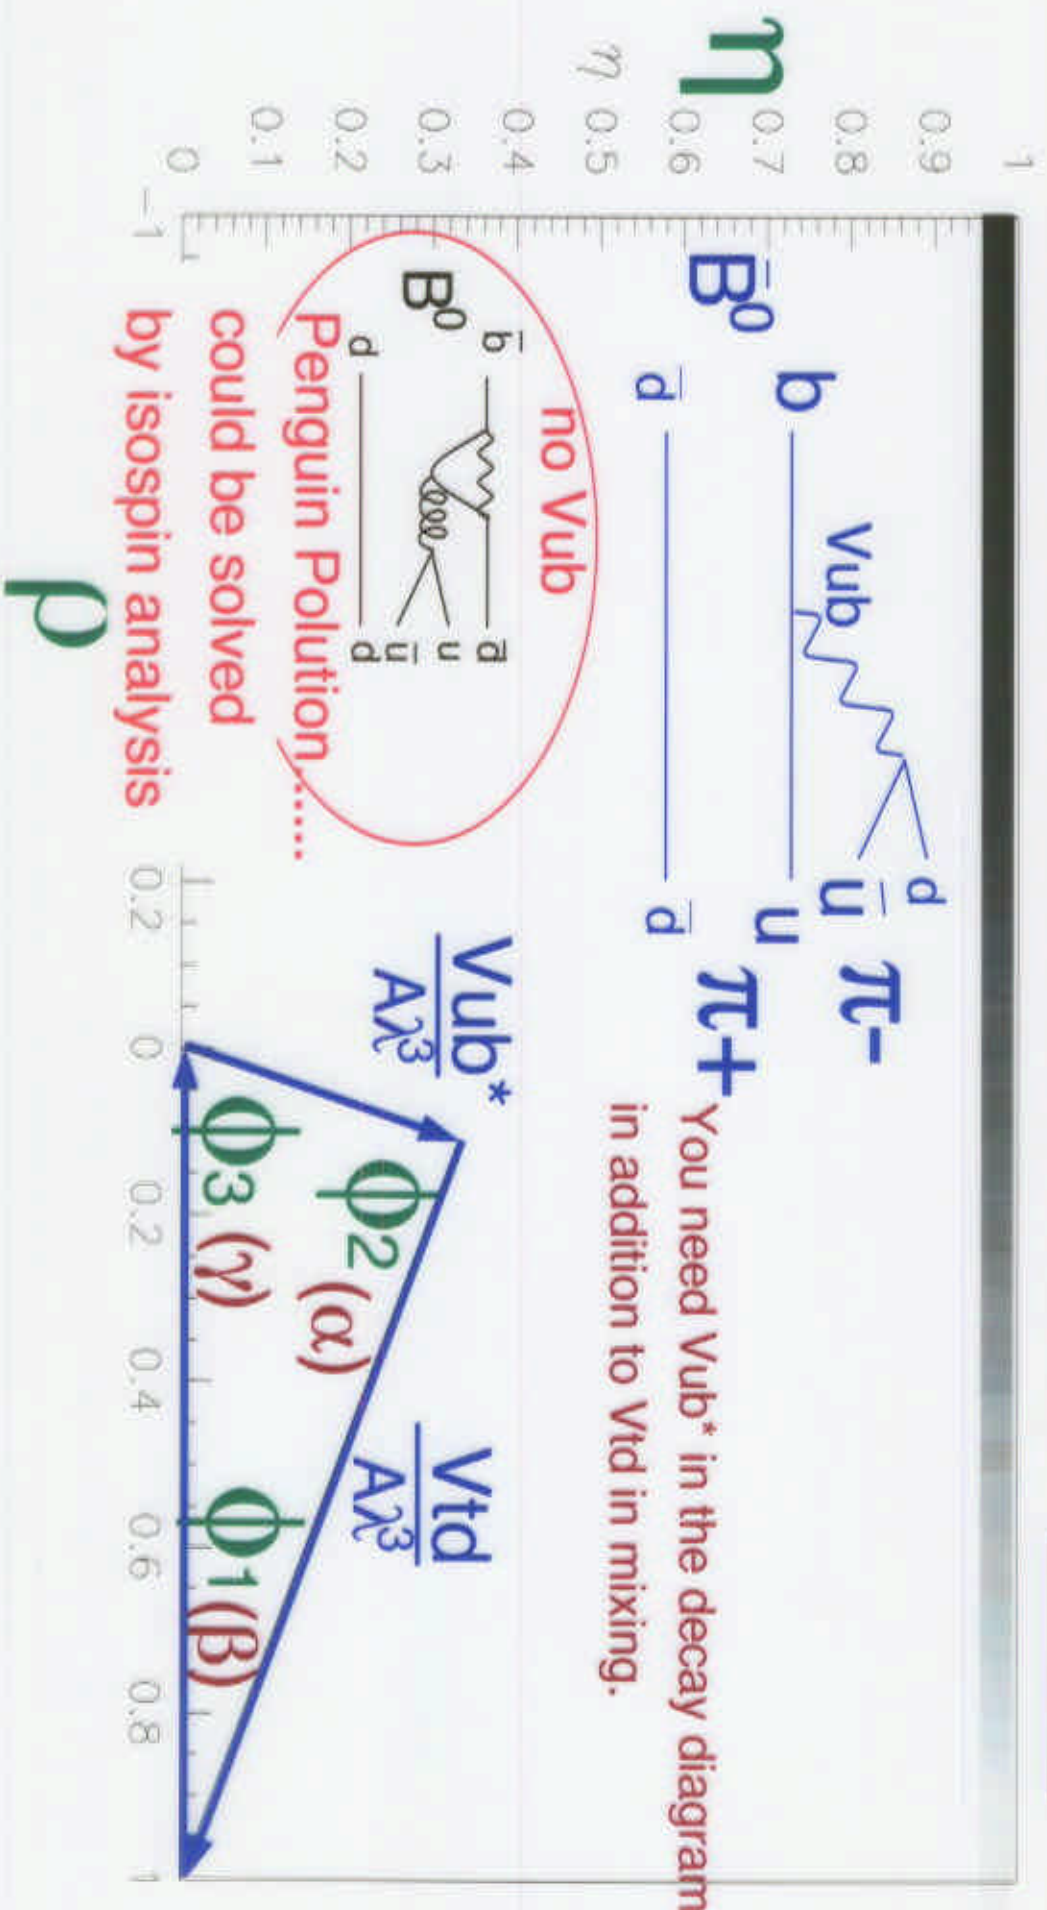 η
η
1
0.9
0.8
0.7
0.6
0.5
0.4
0.3
0.2
0.1
0
d
Vub
ū π-
b
u
B̄⁰
π+
d̄
d̄
You need Vub* in the decay diagram
in addition to Vtd in mixing.
no Vub
b̄
d̄
B⁰
u
ū
d
d
Penguin Polution......
could be solved
by isospin analysis
Vub*
Aλ³
Vtd
Aλ³
ϕ2
(α)
ϕ3 (γ)
ϕ1(β)
-1
0.2
0
0.2
0.4
0.6
0.8
1
ρ